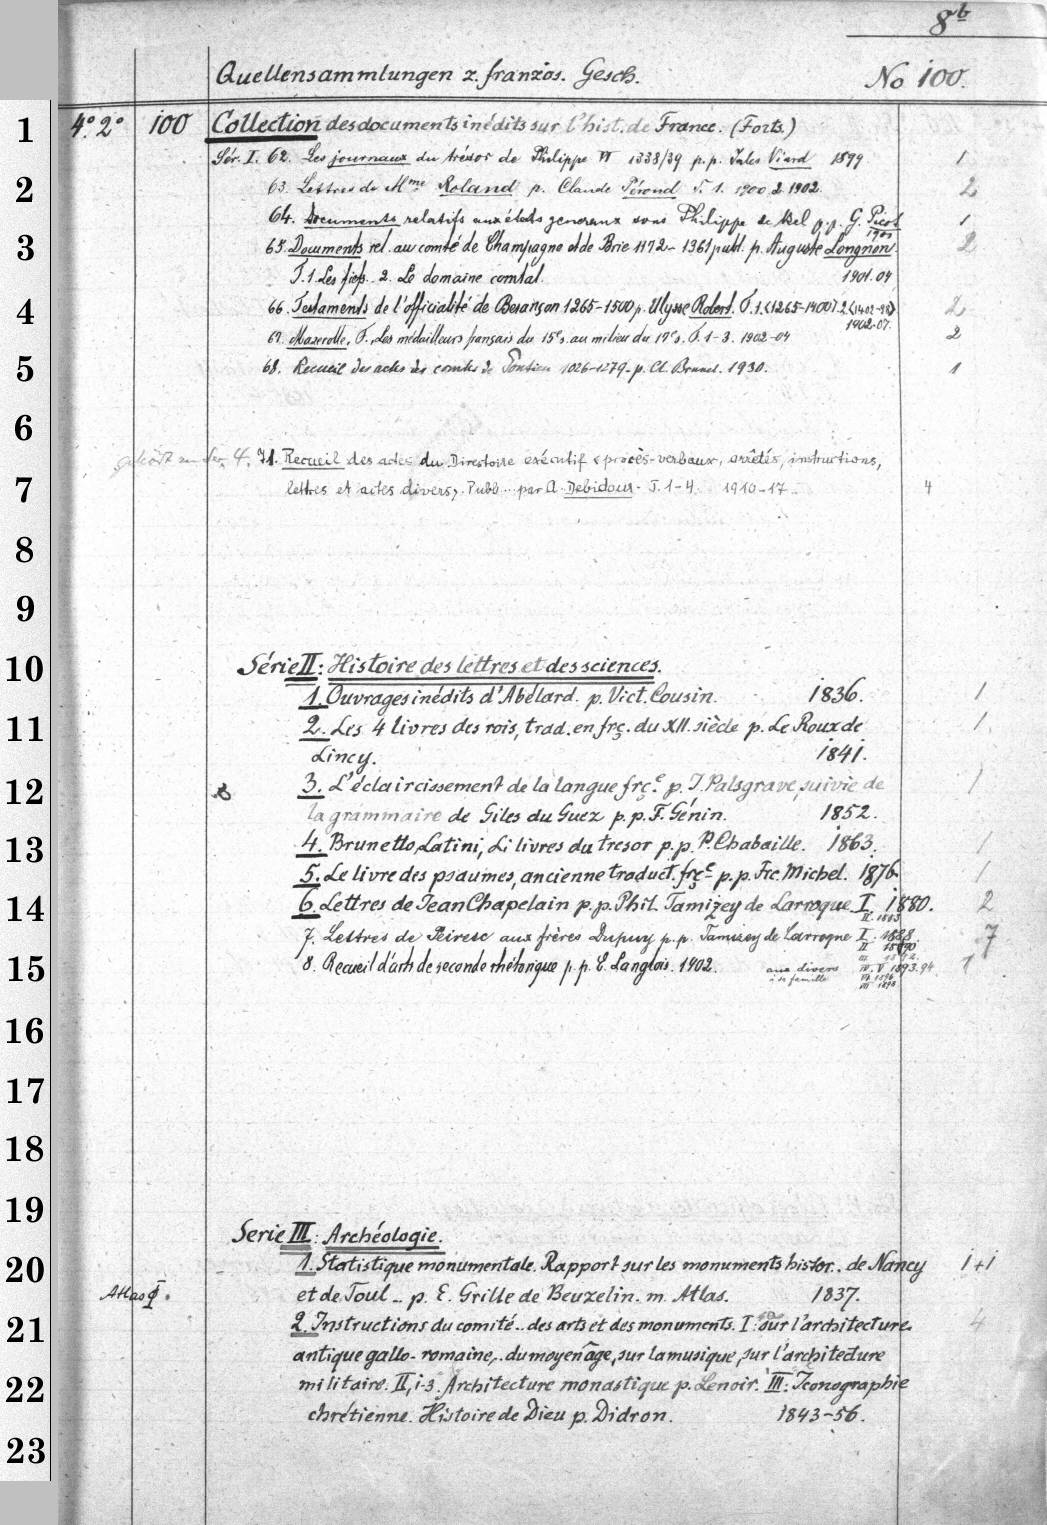 8b
Quellensammlungen z. französ. Gesch. No 100.
1 4° 2° 100 Collection des documents inédits sur l'hist. de France. (Forts.)
Sér. I. 62. Les journaux du trésor de Philippe VI 1338/39 p. p. Jules Viard 1899 1
2 63. Lettres de Mme Roland p. Claude Pérond T. 1. 1900. 2. 1902. 2
64. Documents relatifs aux états generaux sous Philippe le Bel p. p. G. Picot 1901 1
3 65. Documents rel. au comté de Champagne et de Brie 1172-1361 publ. p. Auguste Longnon. 2
T. 1. Les fiefs. 2. Le domaine comtal. 1901. 04
4 66. Testaments de l'officialité de Besançon 1265-1500 p. Ulysse Robert. T. 1. (1265-1400) 2 (1402-98) 1902-07. 2
67. Mazerolle, F., Les médailleurs français du 15e s. au milieu du 17e s. T. 1-3. 1902-04 2
5 68. Recueil des actes des comtes de Pontieu 1026-1279 p. Cl. Brunel. 1930. 1
6
gehört zu Ser. 4. 71. Recueil des actes du Directoire exécutif (procès-verbaux, arrêtés, instructions,
7 lettres et actes divers). Publ... par A. Debidour. T. 1-4. 1910-17. 4
8
9
10 Série II: Histoire des lettres et des sciences.
1. Ouvrages inédits d'Abélard. p. Vict. Cousin. 1836. 1
11 2. Les 4 livres des rois, trad. en frç. du XII. siècle p. Le Roux de 1.
Lincy. 1841.
12 3. L'éclaircissement de la langue frç.e p. J. Palsgrave, suivie de 1
la grammaire de Giles du Guez p. p. F. Génin. 1852.
13 4. Brunetto Latini, Li livres du tresor p. p. P. Chabaille. 1863. 1
5. Le livre des psaumes, ancienne traduct. frçe p. p. Frc. Michel. 1876. 1
14 6. Lettres de Jean Chapelain p. p. Phil. Tamizey de Larroque I 1880. 2
II. 1883
7. Lettres de Peiresc aux frères Dupuy p. p. Tamizey de Larroque I. 1888 7
II 1890
III 1892.
15 8. Recueil d'arts de seconde rhétorique p. p. E. Langlois. 1902. aux divers IV. V 1893. 94 1
à sa famille VI 1896
VII 1898
16
17
18
19
Serie III: Archéologie.
20 1. Statistique monumentale. Rapport sur les monuments histor. de Nancy 1+1
Atlas I. et de Toul – p. E. Grille de Beuzelin. m. Atlas. 1837.
21 2. Instructions du comité.. des arts et des monuments. I: sur l'architecture 4
antique gallo-romaine,.. du moyen âge, sur la musique, sur l'architecture
22 militaire. II, 1-3. Architecture monastique p. Lenoir. III: Iconographie
chrétienne. Histoire de Dieu p. Didron. 1843-56.
23